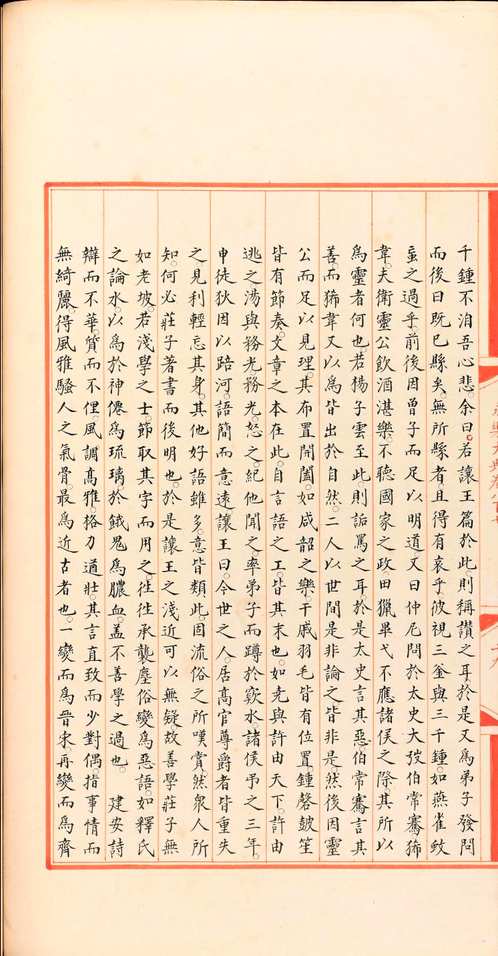 千鍾不洎吾心悲余曰若讓王篇於此則稱讚之耳於是又為弟子發問
而後曰既已縣矣無所縣者且得有哀乎彼視三釜與三千鍾如燕雀蚊
䖟之過乎前後因曾子而足以明道又曰仲尼問於太史大弢伯常騫狶
韋夫衛靈公飲酒湛樂不聽國家之政田獵畢弋不應諸侯之際其所以
為靈者何也若楊子雲至此則詬罵之耳於是太史言其惡伯常騫言其
善而狶韋又以為皆出於自然二人以世間是非論之皆非是然後因靈
公而足以見理其布置開闔如咸韶之樂干戚羽毛皆有位置鍾磬皷笙
皆有節奏文章之本在此自言語之工皆其末也如光與許由天下許由
逃之湯與務光務光怒之紀他聞之率弟子而蹲於窾水諸侯弔之三年
申徒狄因以踣河語簡而意遠讓王曰今世之人居高官尊爵者皆重失
之見利輕忘其身其他好語雖多意皆類此因流俗之所嘆賞然衆人所
知何必莊子著書而後明也於是讓王之淺近可以無疑故善學莊子無
如老坡若淺學之士節取其字而用之往往承襲塵俗變為惡語如釋氏
之論水以為於神僊為琉璃於餓鬼為膿血盖不善學之過也 建安詩
辯而不華質而不俚風調高雅格力遒壯其言直致而少對偶指事情而
無綺麗得風雅騷人之氣骨最為近古者也一變而為晉宋再變而為齊